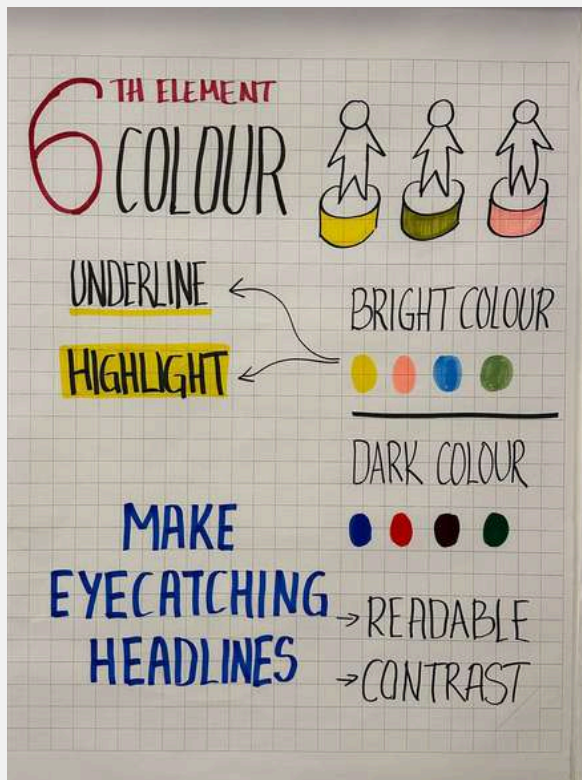 6TH ELEMENT
COLOUR
UNDERLINE
HIGHLIGHT
BRIGHT COLOUR
DARK COLOUR
MAKE
EYECATCHING
HEADLINES
→ READABLE
→ CONTRAST